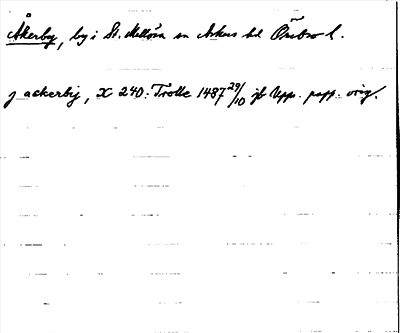 Åkerby, by i St. Mellösa sn Askers hd Örebro l.
j ackerby, X 240: Trolle 1487 29/10 jb Upps. papp. orig.